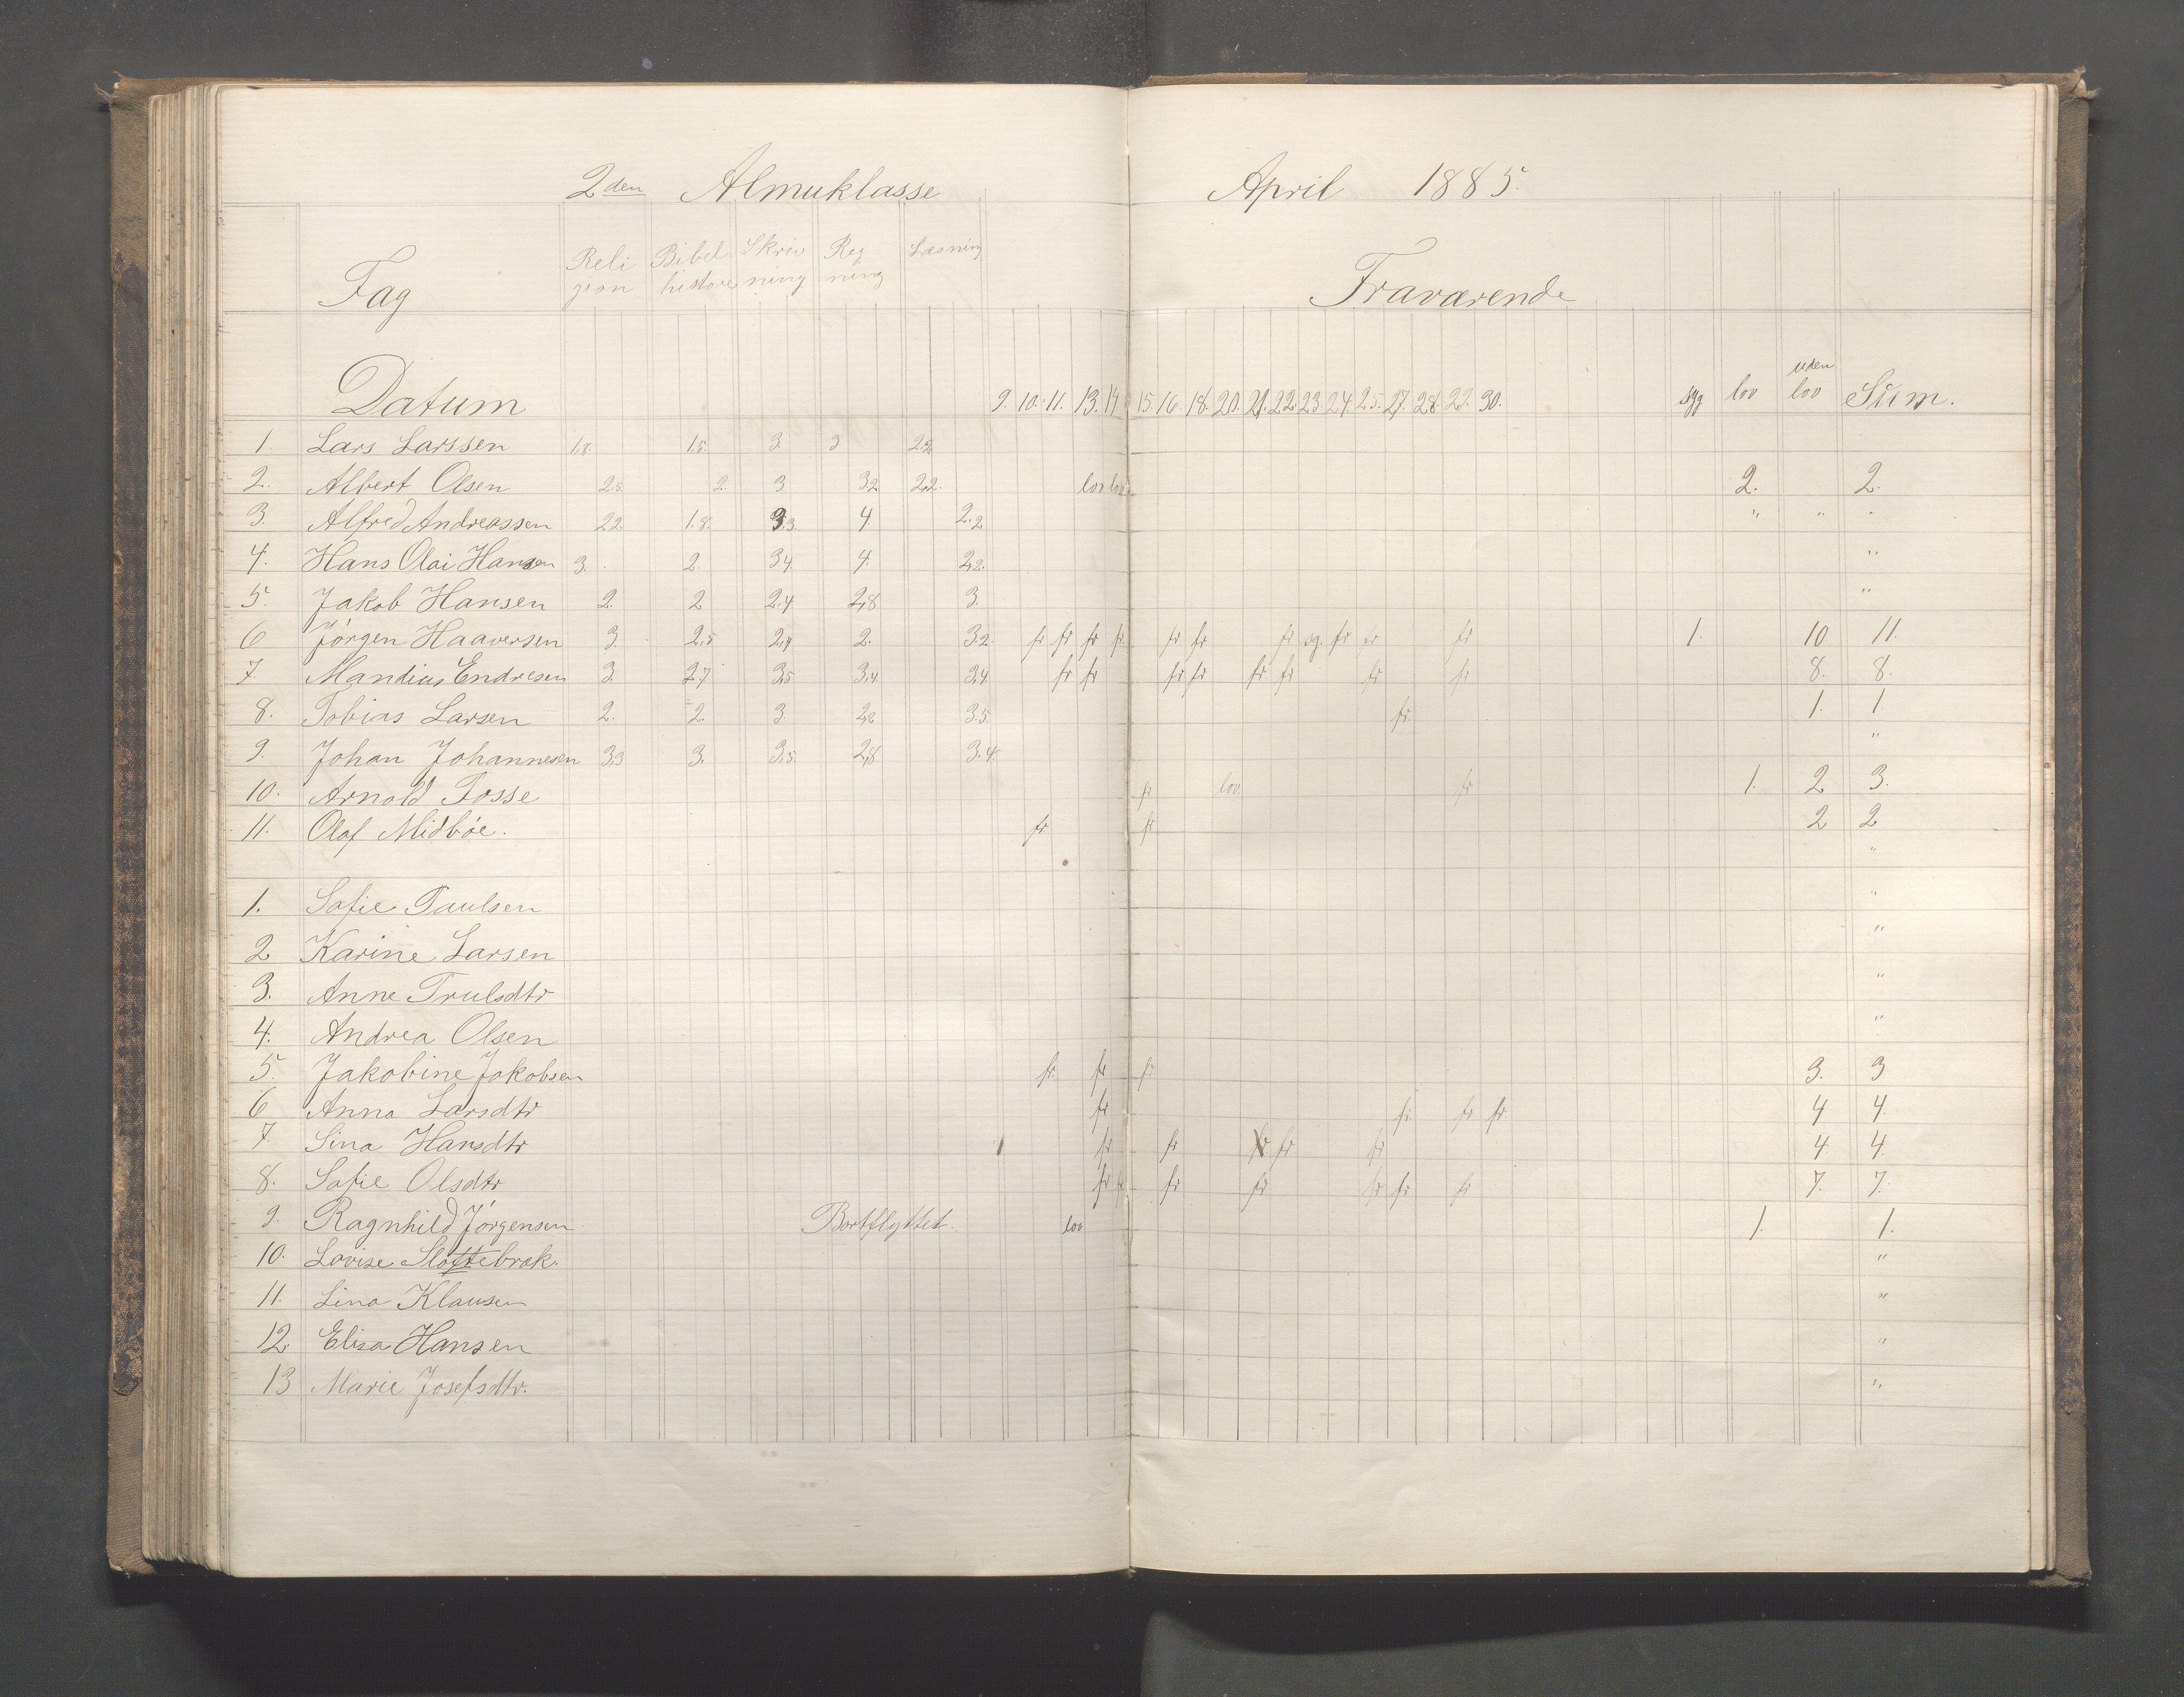 2den Almuklasse April 1885.
Fag Religion Bibelhistore Skrivning Regning Læsning Fraværende
Datum 9. 10. 11. 13. 14 15. 16. 18. 20. 21. 22. 23. 24. 25. 27. 28. 30. syg lov uden lov Sum.
1. Lars Larssen 1,8. 1,5. 3. 3 2,2
2. Albert Olsen 2.5. 2. 3 3,2 2,2. lov lov 2. 2.
3. Alfred Andreassen 2,2. 1.8. 3.3. 4. 2.2 " " "
4. Hans Olai Hansen 3. 2. 3,4. 4. 2,2. "
5. Jakob Hansen 2. 2 2.4 2,8 3. "
6 Jörgen Haaversen 3. 2,5 2,4 2. 3.2. fr fr fr fr. fr fr fr sg. fr fr fr 1. 10 11.
7. Mandius Endresen 3 2,7 3,5 3,4 3,4. fr fr fr fr fr fr fr fr 8. 8.
8. Tobias Larsen 2. 2. 3. 2,2 3.5. fr. 1. 1.
9. Johan Johannesen 3,3 3. 3,5. 2,8 3.4. "
10. Arnold Fosse fr lov. fr 1. 2 3.
11. Olaf Midböe. fr fr 2 2
"
1. Sofie Paulsen "
2 Karine Larsen "
3. Anne Trulsdtr "
4. Andrea Olsen "
5. Jakobine Jakobsen fr. fr fr. 3. 3
6 Anna Larsdtr fr fr. fr fr 4 4.
7. Sina Hansdtr fr fr fr fr fr 4 4.
8. Sofie Olsdtr fr fr fr fr fr fr fr 7. 7.
9. Ragnhild Jörgensen Bortflyttet. lov 1. 1.
10. Lovise Slottebrak. "
11. Lina Klausen "
12. Elisa Hansen "
13 Marie Josefsdtr. "